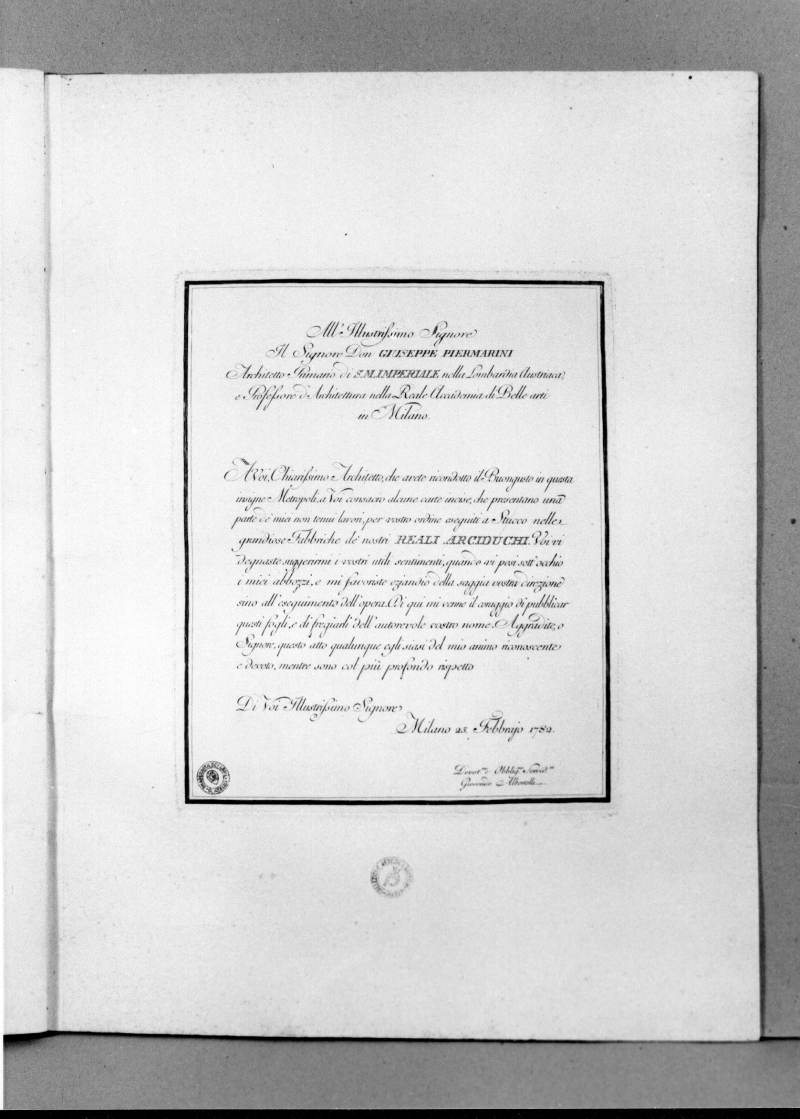 All'Illustrissimo Signore
Il Signore Don GIUSEPPE PIERMARINI
Architetto Primario di S.M.IMPERIALE nella Lombardia Austriaca,
e Professore d'Architettura nella Reale Accademia di Belle arti
in Milano.
A Voi, Chiarissimo Architetto, che avete ricondotto il Buongusto in questa
insigne Metropoli, a Voi consacro alcune carte incise, che presentano una
parte de' miei non tenui lavori, per vostro ordine eseguiti a Stucco nelle
grandiose Fabbriche de' nostri REALI ARCIDUCHI. Voi vi
degnaste suggerirmi i vostri utili sentimenti, quando vi posi sott'occhio
i miei abbozzi, e mi favoriste eziandio della saggia vostra direzione
sino all'eseguimento dell'opera. Di qui mi venne il coraggio di pubblicar
questi fogli, e di fregiarli dell'autorevole vostro nome. Aggradite, o
Signore, questo atto qualunque egli siasi del mio animo riconoscente
e devoto, mentre sono col più profondo rispetto
Di Voi Illustrissimo Signore
Milano 23. Febbrajo 1782.
Devot.mo ed Obblig.mo Servid.re
Giocondo Albertolli